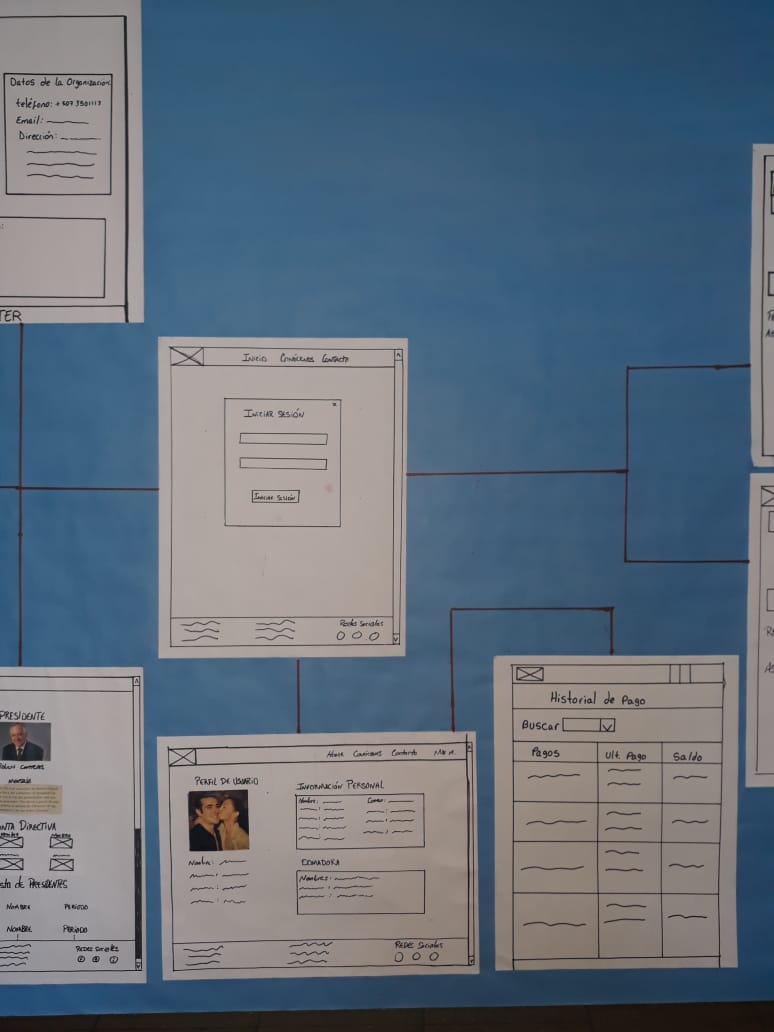 Datos de la Organización
teléfono: +507 3501113
Email:
Dirección:
TER
Inicio Conócenos Contacto
INICIAR SESIÓN
INICIAR SESIÓN
Redes Sociales
PRESIDENTE
MENSAJE
NTA DIRECTIVA
sta de PRESIDENTES
NOMBRE PERIODO
NOMBRE PERIODO
REDES SOCIALES
Conócenos Contacto
PERFIL DE USUARIO
Nombre:
INFORMACIÓN PERSONAL
Nombre: Correo:
Nombres:
REDES Sociales
Historial de Pago
Buscar
Pagos Ult. Pago Saldo